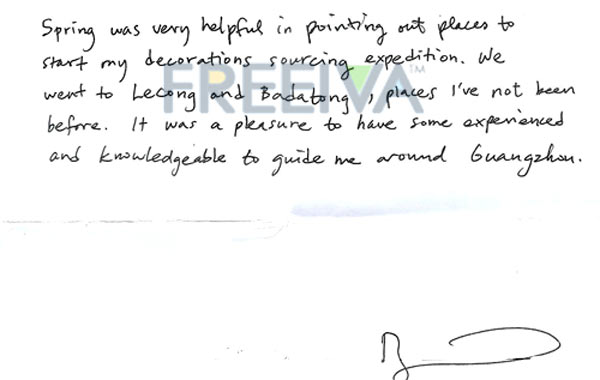 Spring was very helpful in pointing out places to
start my decorations sourcing expedition. We
went to Lecong and Badatong, places I've not been
before. It was a pleasure to have some experienced
and knowledgeable to guide me around Guangzhou.
FREEIVA™